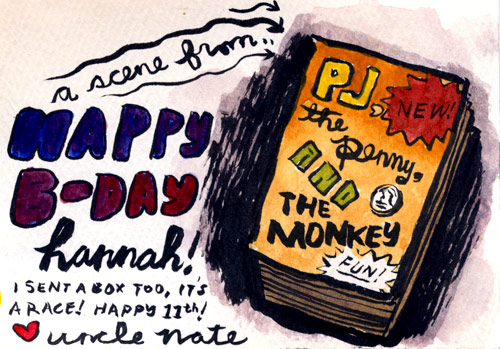 a scene from..
HAPPY
B-DAY
hannah!
I SENT A BOX TOO, IT'S
A RACE! HAPPY 11th!
uncle nate
PJ,
NEW!
the
Penny,
AND
THE
MONKEY
FUN!